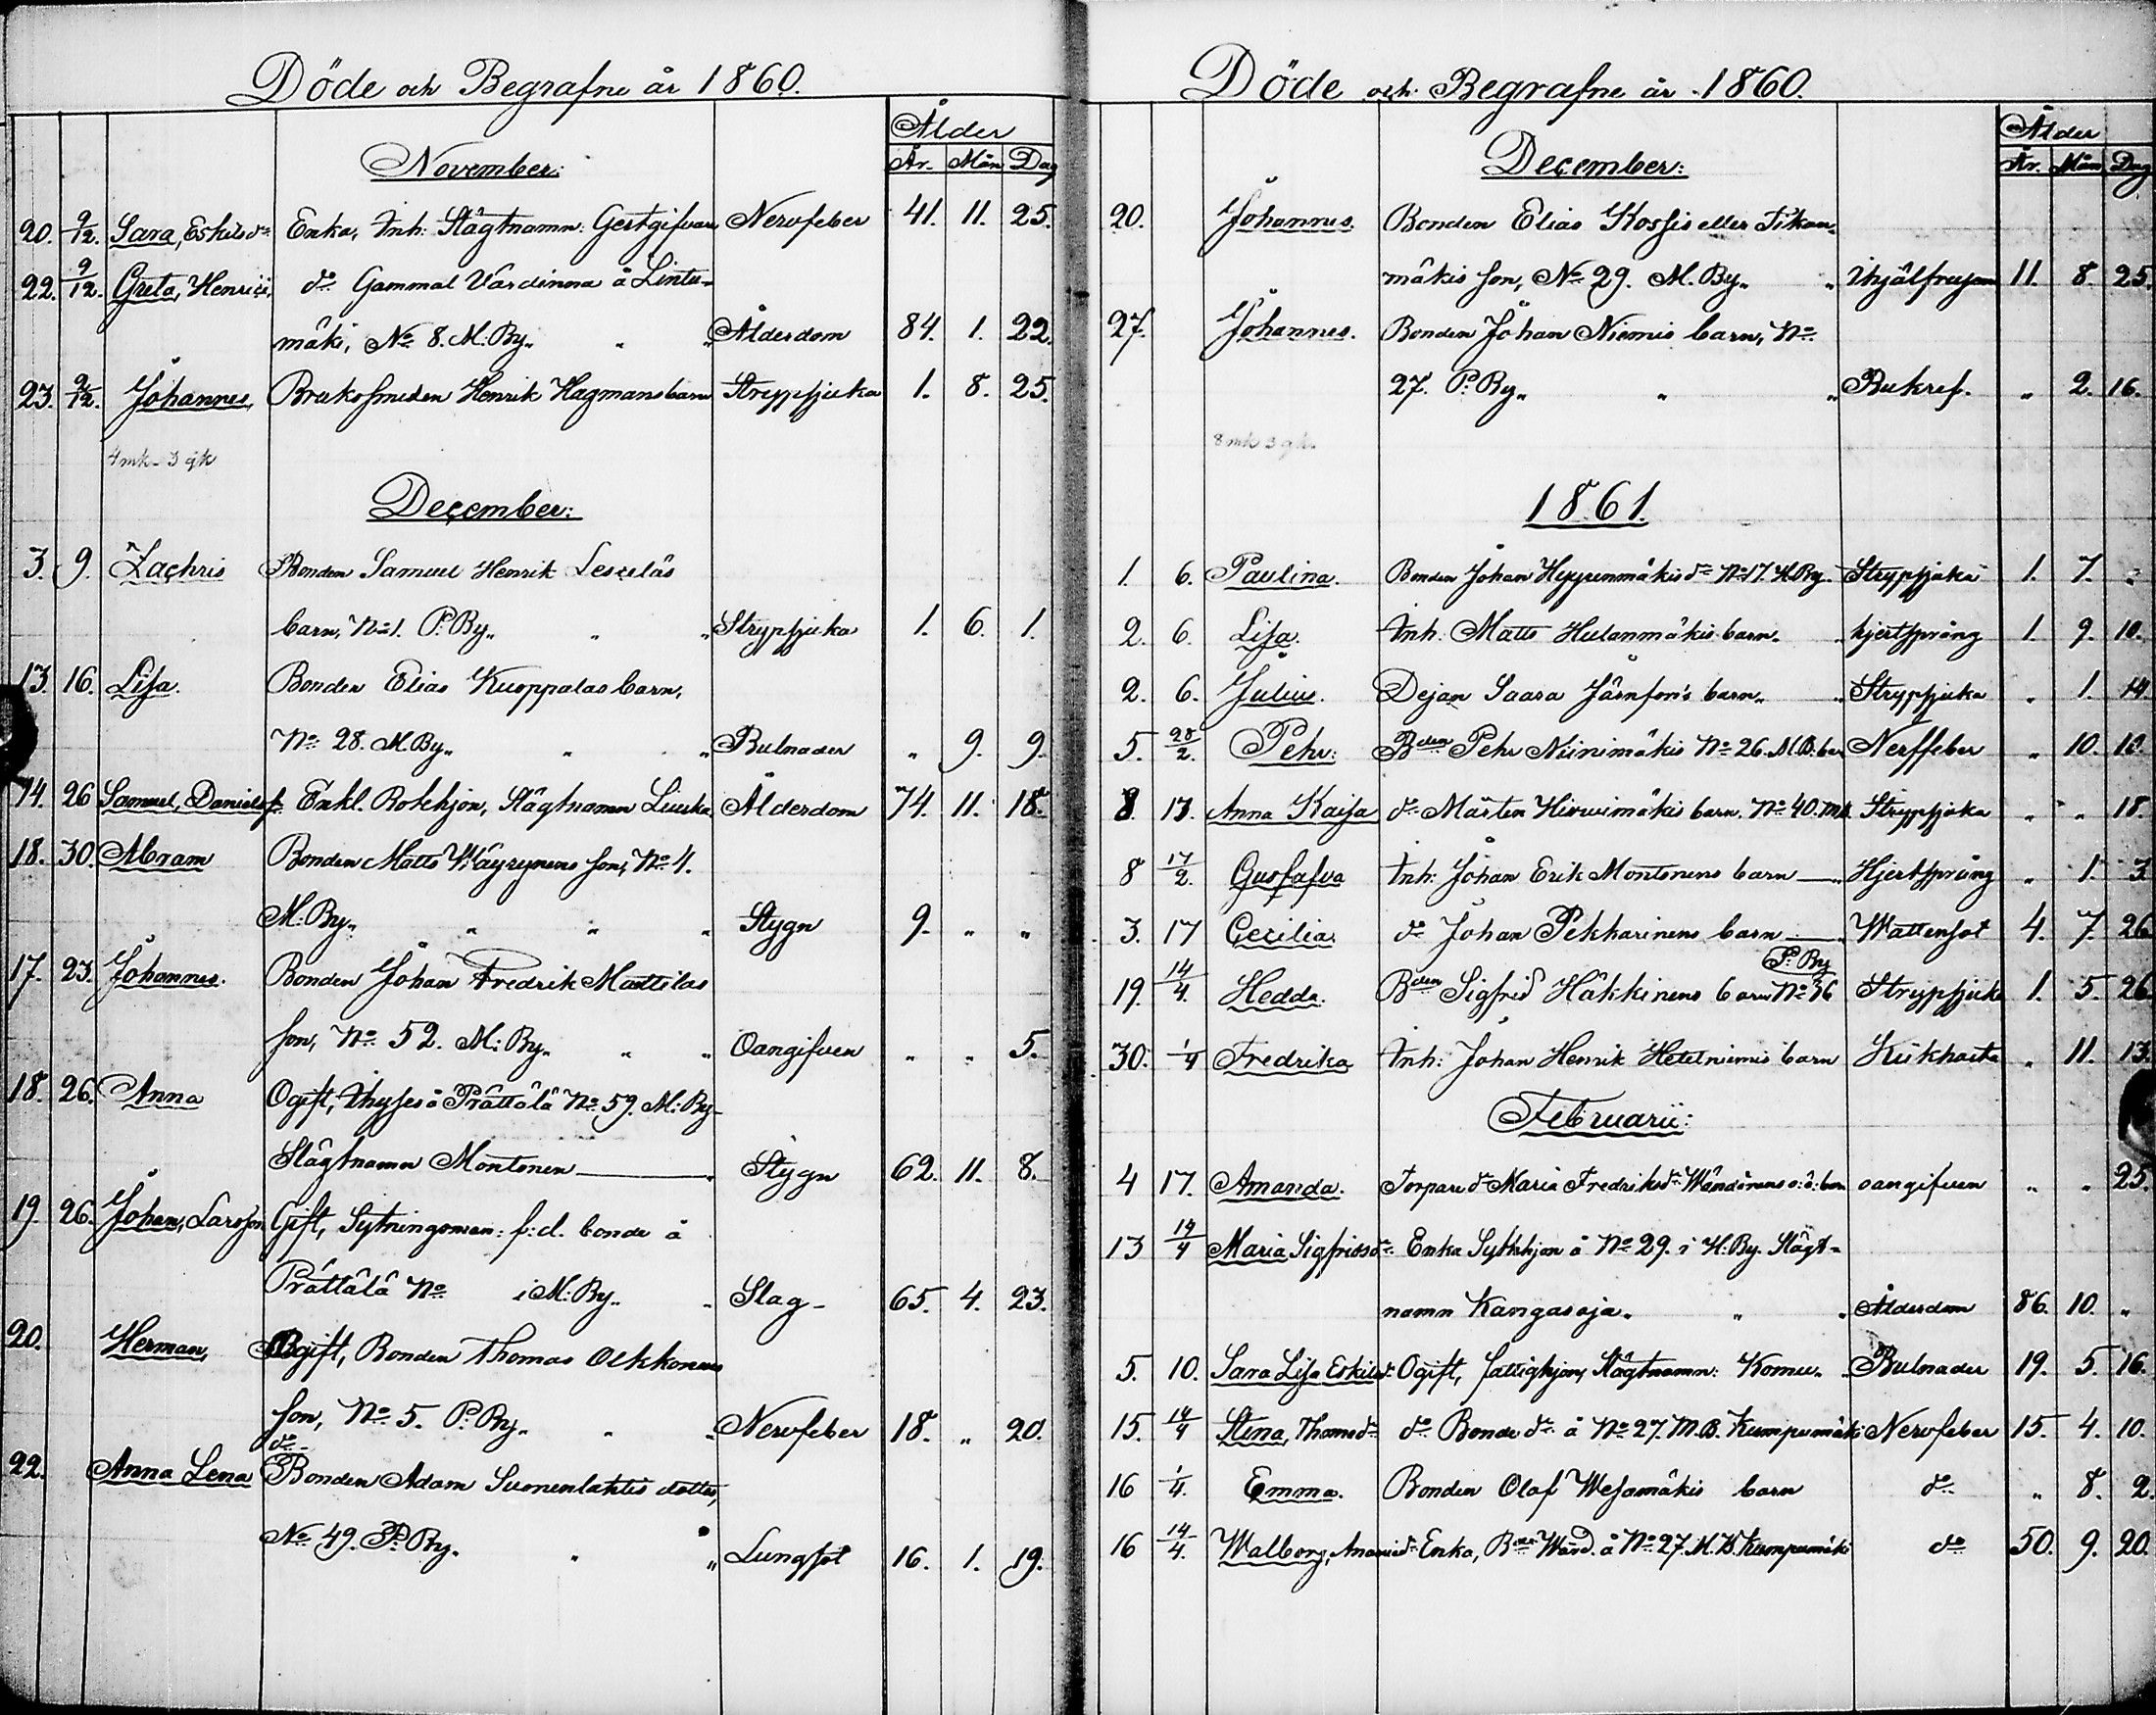 Döde och Begrafne år 1860.
Ålder
År. Mån Dag
November:
20. 9/12. Sara, Eskilsdr Enka, Inh: Slägtnamn: Gestgifvare Nervfeber 41. 11. 25.
22. 9/12. Greta, Henrici, do Gammal Värdinna å Lintu-
mäki, No 8. M: By. " " Ålderdom 84. 1. 22.
23. 9/12. Johannes, Bruksmeden Henrik Hagmans barn Strypsjuka 1. 8. 25.
4 mk - 3 qk
December:
3. 9. Zachris Bonden Samuel Henrik Leskeläs
barn, No 1. P: By. " " Strypsjuka 1. 6. 1.
13. 16. Lisa. Bonden Elias Kuoppalas barn,
No 28. M By. " " Bulnader " 9. 9.
14. 26 Samuel, Danielsf. Enkl. Rotehjon, Slägtnamn Liuska Ålderdom 74. 11. 18.
18. 30. Abram Bonden Matts Wäyrynens son, No 4.
M: By. " " " Stygn 9. " "
17. 23. Johannes. Bonden Johan Fredrik Mattilas
son, No 52. M: By. " " Oangifven " " 5.
18. 26. Anna Ogift, Inhyses å Prättälä No 59. M: By
Slägtnamn Montonen " Stygn 62. 11. 8.
19. 26. Johan, Larsson Gift, Sytningsman: f:d. bonde å
Prättälä No i M: By. " Slag 65. 4. 23.
20. Herman, Ogift, Bonden Thomas Olkkonens
son, No 5. P: By. " " Nervfeber 18. " 20.
22. Anna Lena do Bonden Adam Suonenlahtis dotter,
No 49. P: By. " " Lungsot 16. 1. 19.
Döde och Begrafne år 1860.
Ålder
År. Mån Dag
December:
20. Johannes. Bonden Elias Kossis eller Tikan-
mäkis son, No 29. M. By. " ihjälfrusen 11. 8. 25.
27. Johannes. Bonden Johan Niemis barn, No
27. P: By. " " Bukref. " 2. 16.
8 mk 3 qk.
1861.
1. 6. Paulina. Bonden Johan Hyyrenmäkis dr No 17. H. By. Strypsjuka 1. 7. "
2. 6. Lisa. Inh: Matts Hulanmäkis barn. " hjertsprång 1. 9. 10.
2. 6. Julius. Dejan Saara Jårnfors's barn. " Strypsjuka " 1. 14.
5. 28/2. Pehr: Bden Pehr Niinimäkis No 26. M. B. bar Nerffeber " 10. 10.
8. 13. Anna Kaisa do Mårten Hirvimäkis barn. No 40. MB. Strypsjuka " " 18.
8 17/2. Gusfafva Inh: Johan Erik Montonens barn " Hjertsprång " 1. 3
3. 17 Cecilia. do Johan Pekkarinens barn " Wattensot 4. 7. 26
19. 14/4. Hedda. Bden Sigfrid Häkkinens barn No 36 P: By Strypsjuka 1. 5. 26
30. 1/4 Fredrika Inh: Johan Henrik Heteniemis barn Kikhosta " 11. 13.
Februarii:
4 17. Amanda. Torpare dr Maria Fredriksdr Wänänens o: ä: barn oangifven " " 25.
13 14/4 Maria Sigfridsdr Enka Sytehjon å No 29. i H: By. Slägt-
namn Kangasoja. " " Ålderdom 86. 10. "
5. 10. Sara Lisa Eskilsdr Ogift, fattighjon, Slägtnamn: Komu. " Bulnader 19. 5. 16.
15. 14/4 Stina, Thomsdr do Bonde dr å No 27. M. B. Kumpumäki Nervfeber 15. 4. 10.
16 1/4. Emma. Bonden Olof Wesamäkis barn do " 8. 2.
16 14/4. Walborg, Ananiedr Enka, Bden Wärd. å No 27. M. B. Kumpumäki do 50. 9. 20.